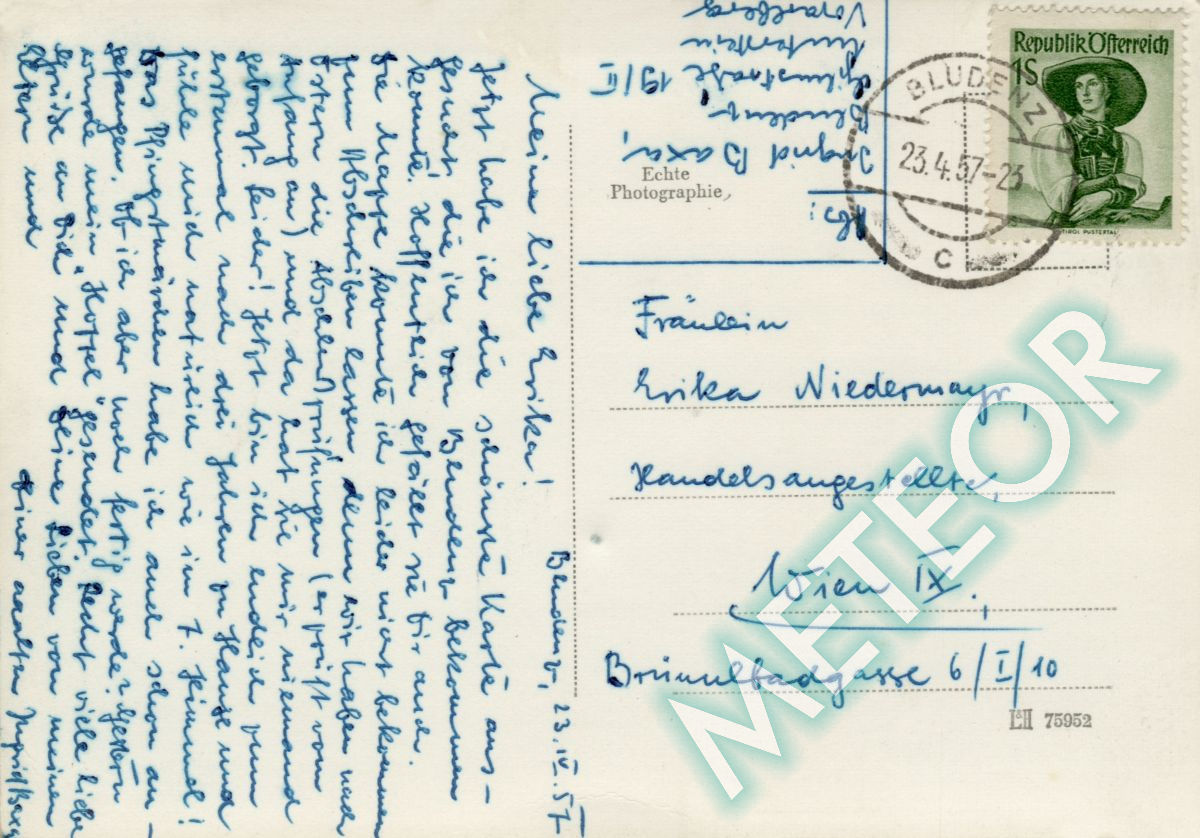 Bludenz, 23.IV.57
Meine liebe Erika!
Jetzt habe ich die schönste Karte aus-
gesucht die ich von Bludenz bekommen
konnte. Hoffentlich gefällt sie Dir auch.
Die Mappe konnte ich leider nicht bekommen
zum Abschreiben lassen, denn wir haben nach
Ostern die Abschlußprüfungen (er prüft vom
Anfang an) und da hat sie mir niemand
geborgt. Leider! Jetzt bin ich endlich zum
erstenmal nach drei Jahren zu Hause und
fühle mich natürlich wie im 7. Himmel!
Das Pfingst habe ich auch schon an-
gefangen. Ob ich aber noch fertig werde? Gestern
wurde mein "Koffer" gesendet. Recht viele liebe
Grüße an Dich und Deine Lieben von meinen
Eltern und
Deiner Ingrid Baxa
Abs:
Ingrid Baxa,
Bludenz
straße 19/II
Vorarlberg
Echte
Photographie
Republik Österreich
1S
TIROL PUSTERTAL
BLUDENZ
23.4.57-23
c
Fräulein
Erika Niedermayr,
Handelsangestellte,
Wien IX.,
Brünnlbadgasse 6/I/10
L&H 75952
METEOR